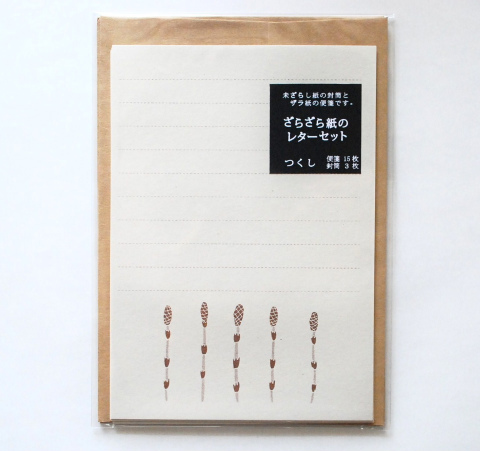 未ざらし紙の封筒と
ザラ紙の便箋です。
ざらざら紙の
レターセット
つくし 便箋 15 枚
封筒 3 枚